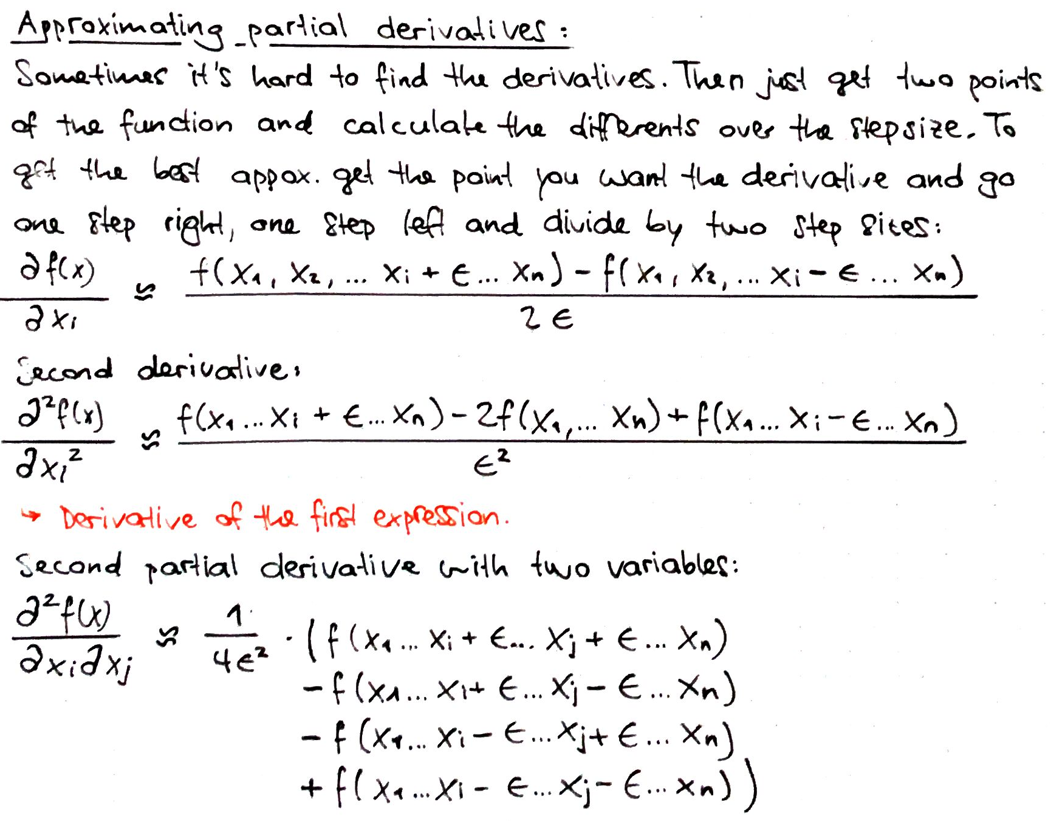 Approximating partial derivatives:
Sometimes it's hard to find the derivatives. Then just get two points
of the function and calculate the differents over the stepsize. To
get the best appox. get the point you want the derivative and go
one step right, one step left and divide by two step sizes:
∂f(x)/∂xi ≈ (f(x1, x2, ... xi + ϵ ... xn) - f(x1, x2, ... xi - ϵ ... xn))/2ϵ
Second derivative:
∂²f(x)/∂xi² ≈ (f(x1 ... xi + ϵ ... xn) - 2f(x1, ... xn) + f(x1 ... xi - ϵ ... xn))/ϵ²
→ Derivative of the first expression.
Second partial derivative with two variables:
∂²f(x)/∂xi∂xj ≈ 1/4ϵ² · (f(x1 ... xi + ϵ ... xj + ϵ ... xn)
- f(x1 ... xi + ϵ ... xj - ϵ ... xn)
- f(x1 ... xi - ϵ ... xj + ϵ ... xn)
+ f(x1 ... xi - ϵ ... xj - ϵ ... xn))